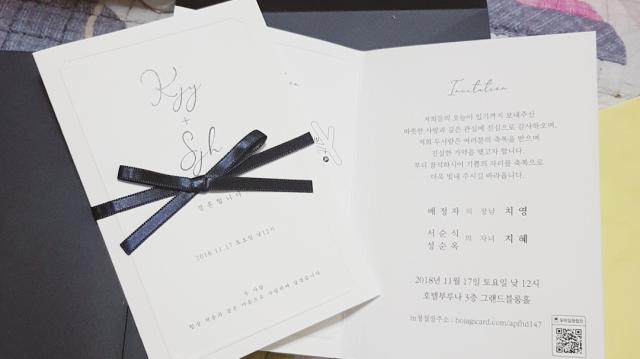 Kjy
+
Sjh
결혼합니다
2018 11 17 토요일 낮12시
두 사람
항상 처음과 같은 마음으로 사랑하며 살겠습니다
Invitation
저희들의 오늘이 있기까지 보내주신
따뜻한 사랑과 깊은 관심에 진심으로 감사하오며,
저희 두사람은 여러분의 축복을 받으며
진실한 가약을 맺고자 합니다.
부디 참석하시어 기쁨의 자리를 축복으로
더욱 빛내 주시길 바라옵니다.
배정자 의 장남 치영
서순식
성순옥 의 자녀 지혜
2018년 11월 17일 토요일 낮 12시
호텔부루나 3층 그랜드볼룸홀
m청첩장주소 : bojagicard.com/apfhd147
모바일청첩장